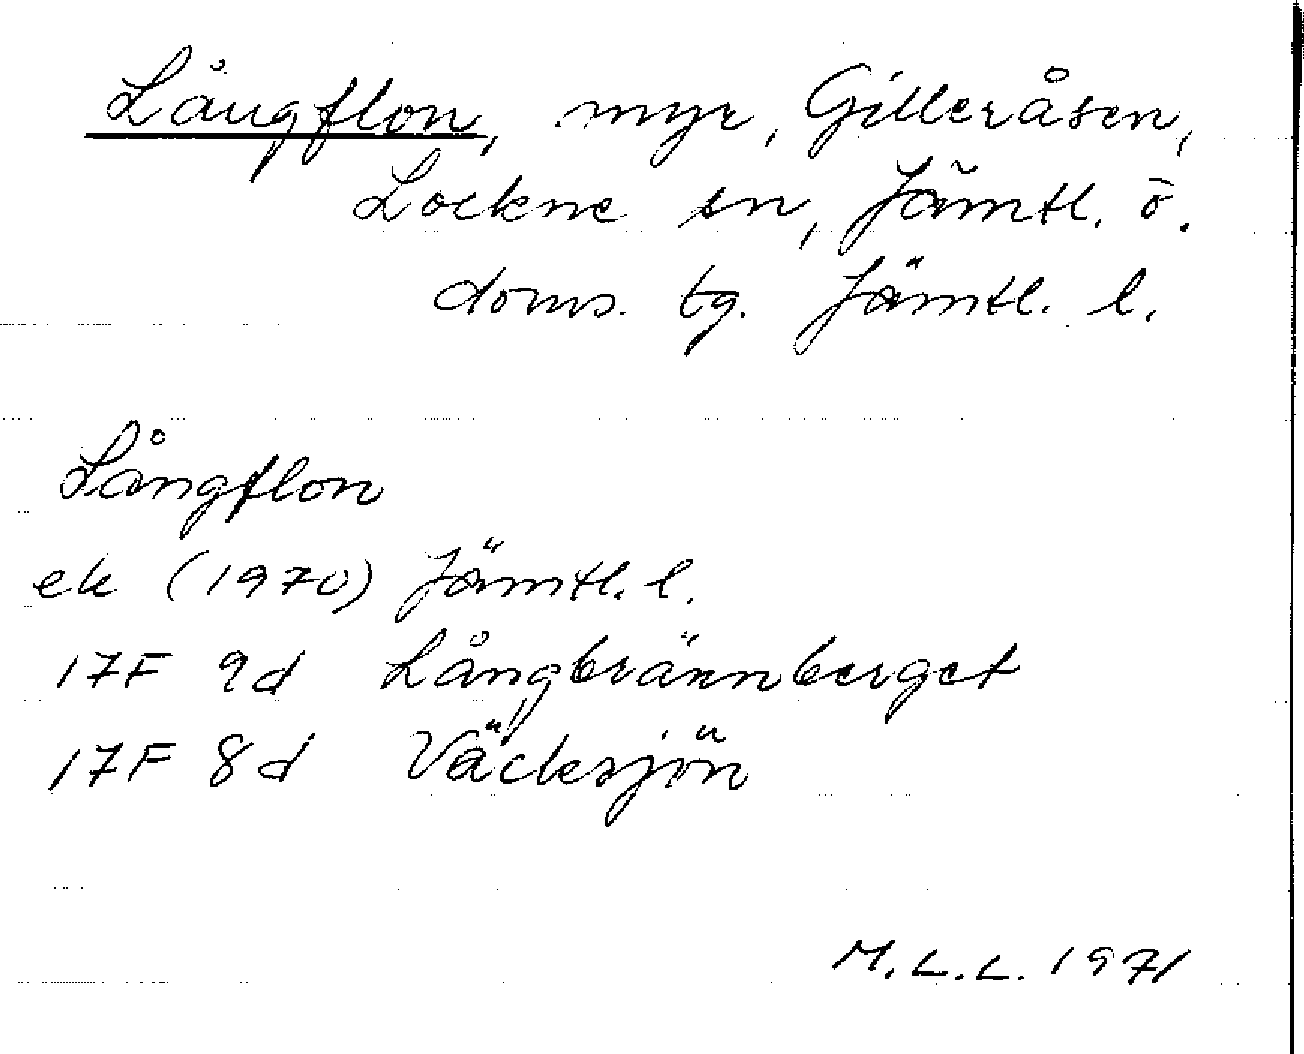 Långflon, myr, Gilleråsen,
Lockne sn, Jämtl. ö.
doms. tg. Jämtl. l.
Långflon
ek (1970) Jämtl. l.
17F 9d Långbrännberget
17F 8d Väcksjön
M.L.L. 1971